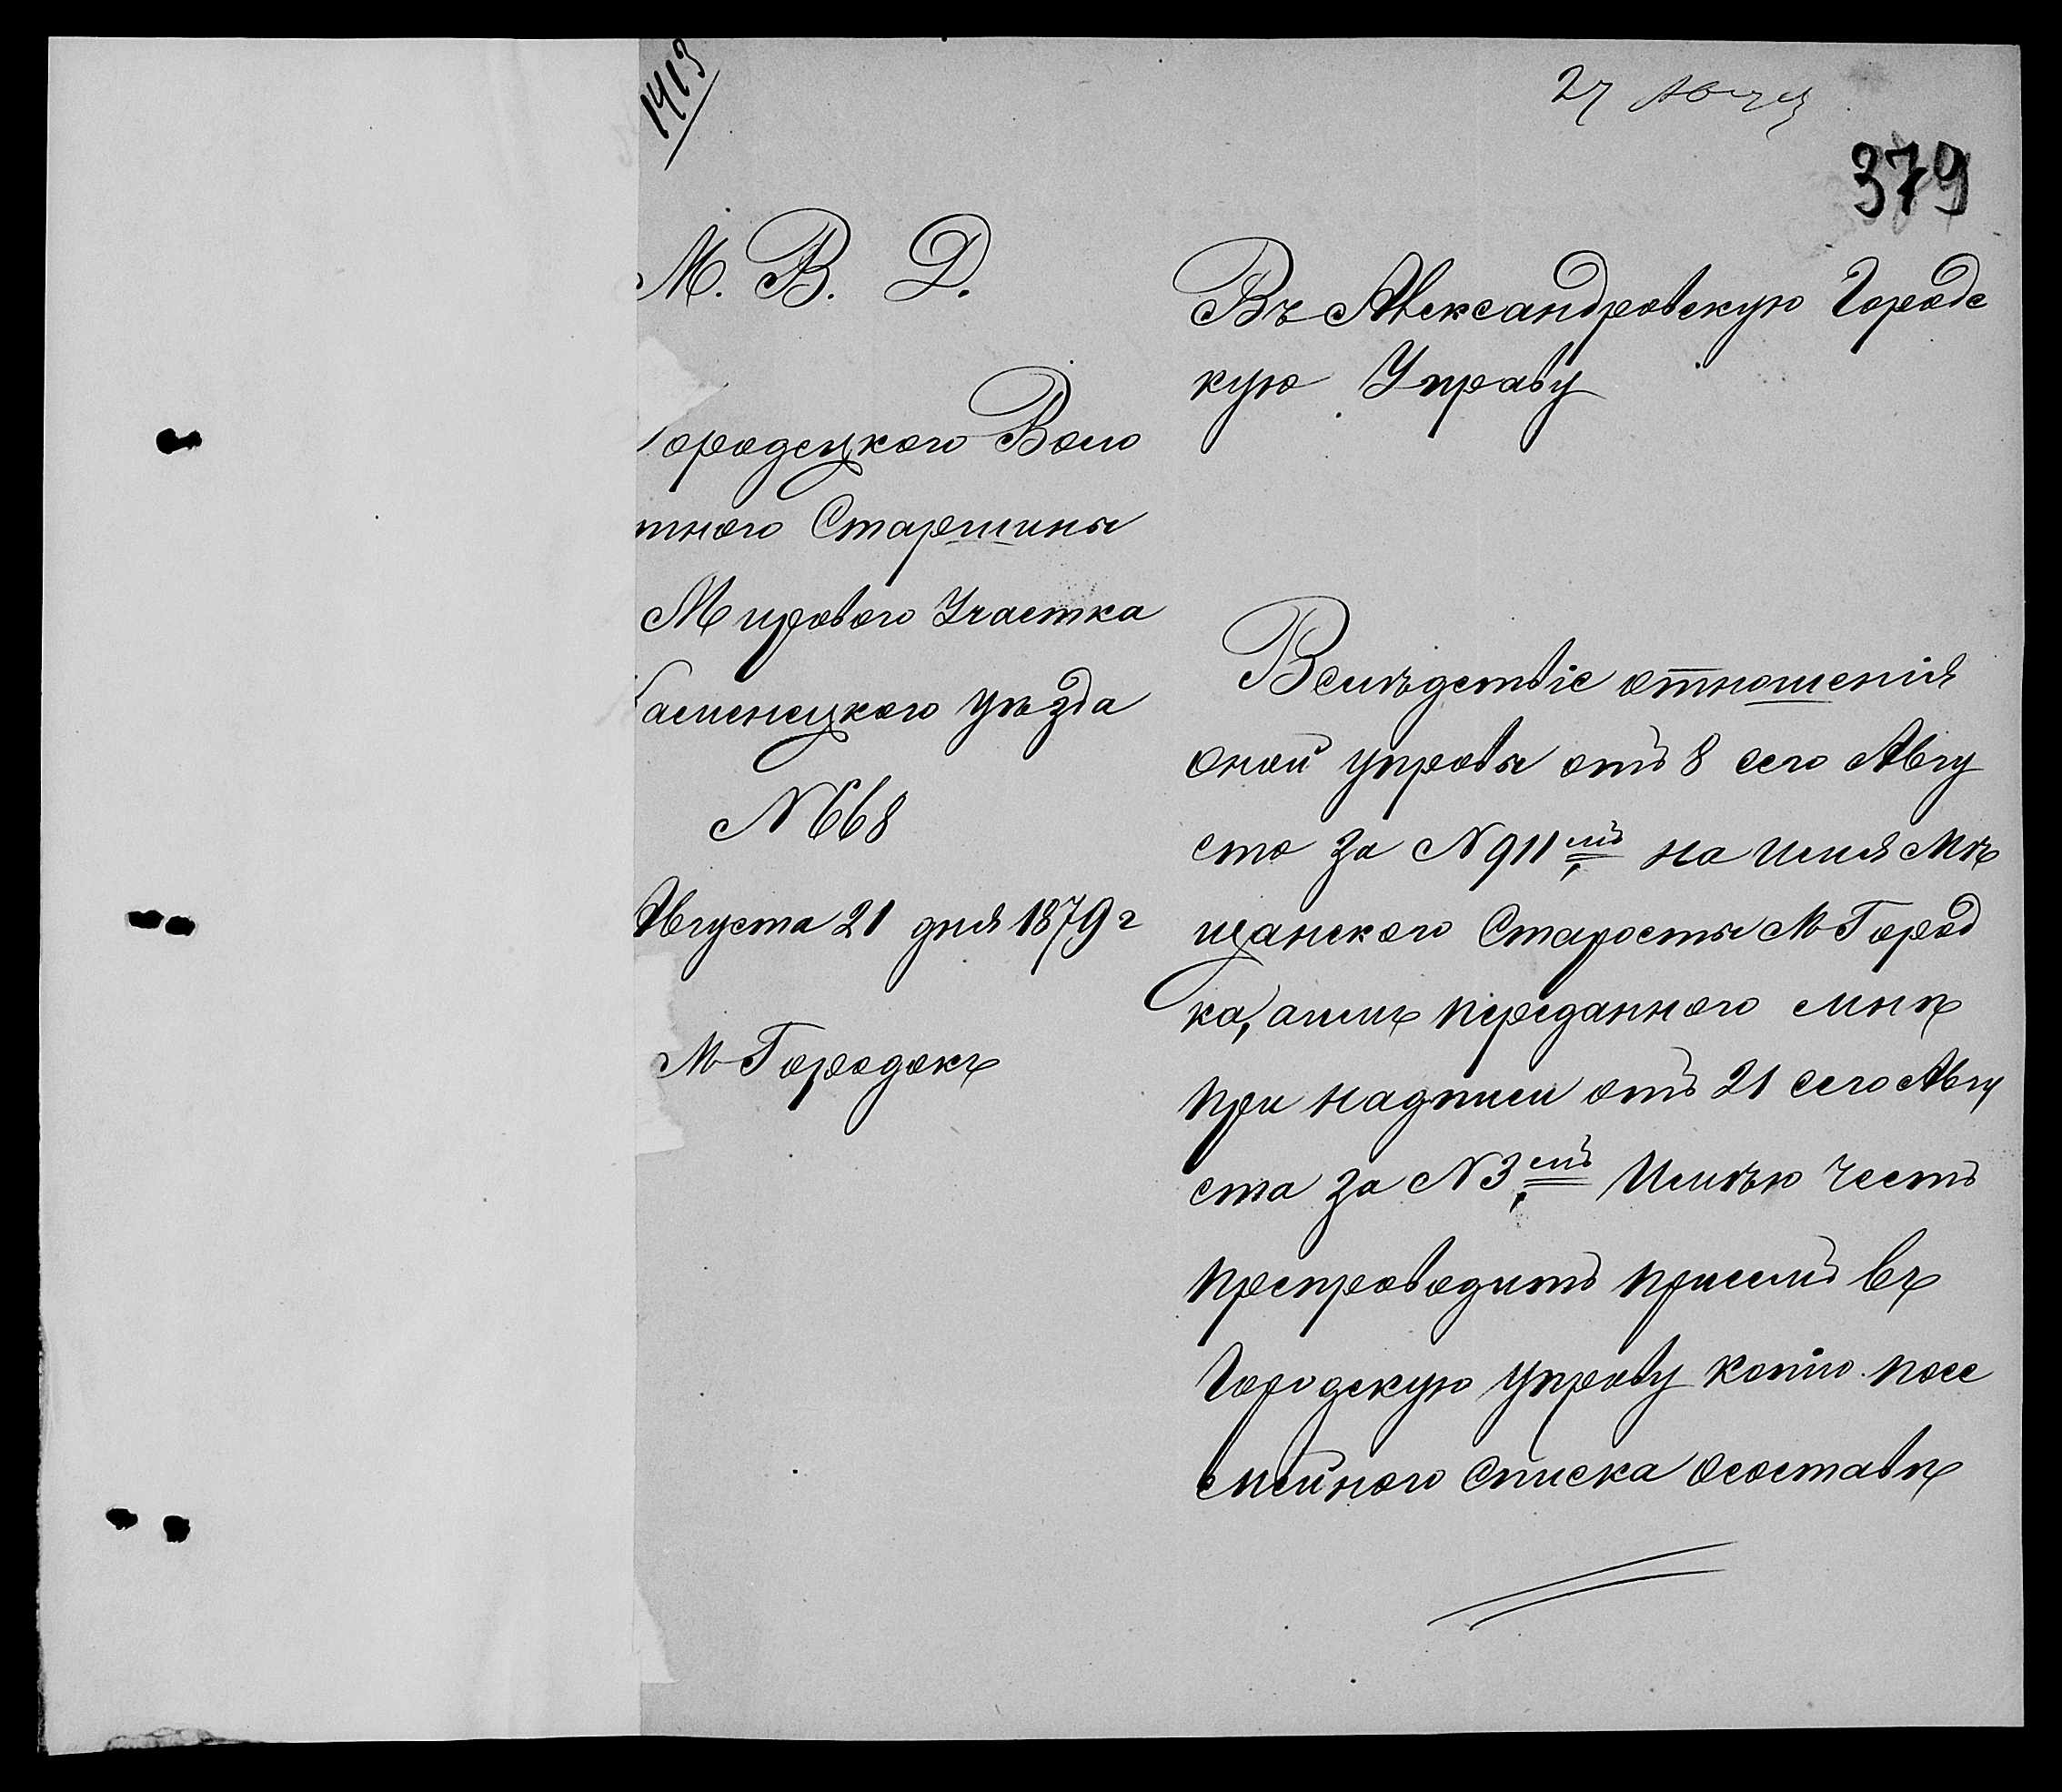 1413
27 Авгу
379
М. В. Д.
ородецкого Воло
тного Старшины
Мирового Участка
аменецкого уѣзда
N 668
Августа 21 дня 1879 г
М Городокъ
Въ Александровскую Городс
кую Управу
Вслѣдствіе отношенія
оной управы отъ 8 сего Авгу
ста за N 911мъ на имя Мѣ
щанского Старосты М Город
ка, а имъ переданного мнѣ
при надписи отъ 21 сего Авгу
ста за N 3мъ Имѣю честь
препроводить присемъ въ
Городскую управу копію посе
мейного списка осоставѣ